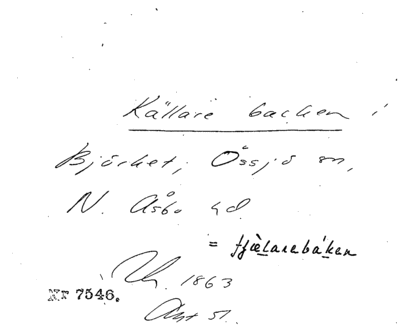 Källare backen i
Björket, Össjö sn,
N. Åsbo hd.
= tjæ̀larebáken
1863
Nr 7546.
51.